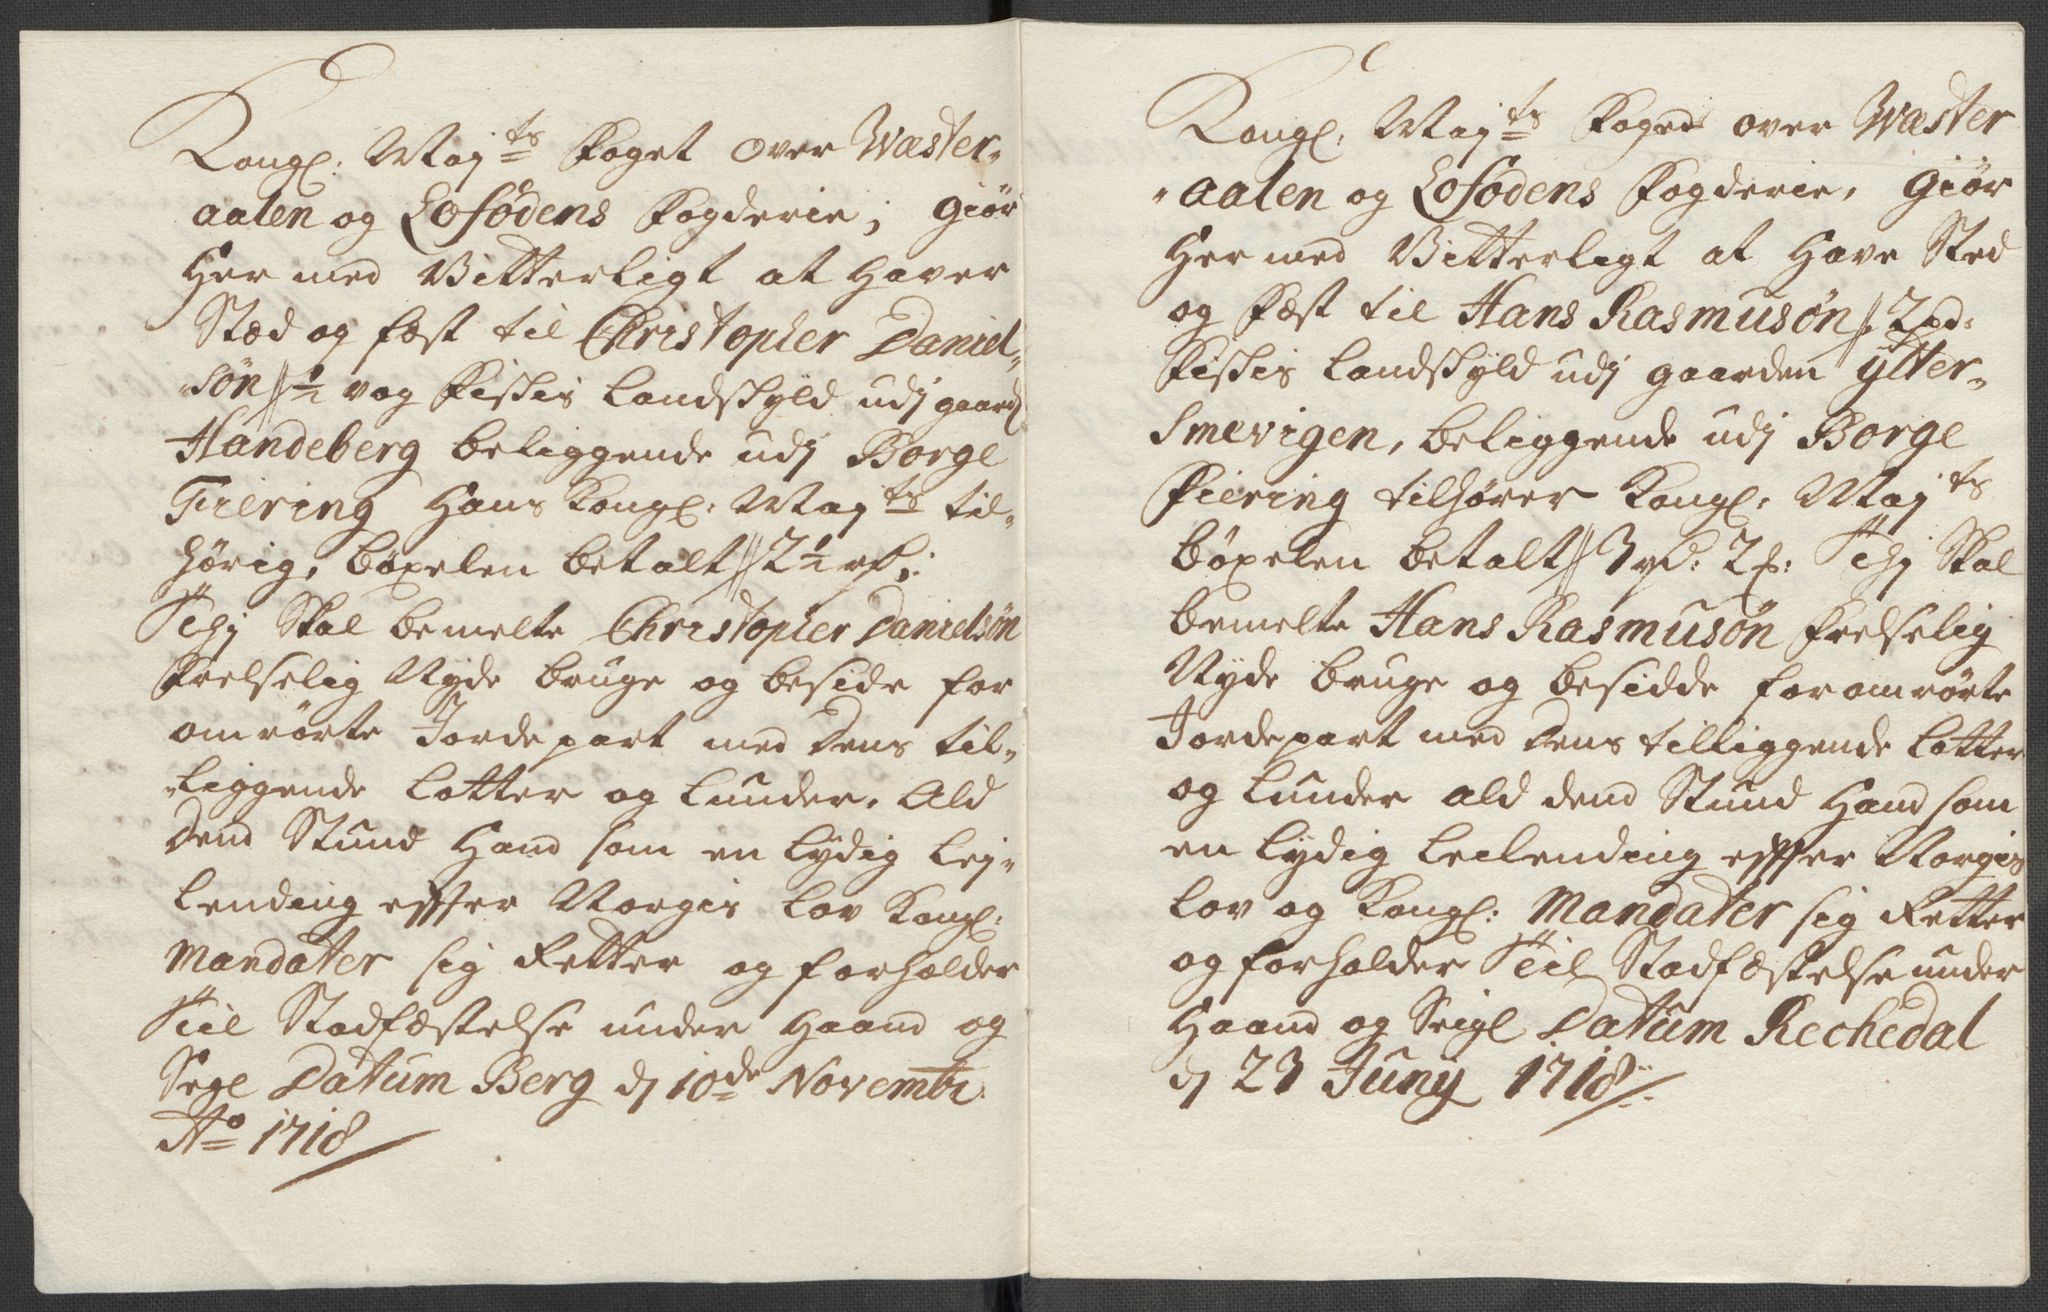 Kongl: Maj:ts Foget over Wæster-
aalen og Lofodens Fogderie; Giør
Her med Vitterligt at haver
Stæd og fæst til Christopher Daniel-
søn // ½ vog Fiskis Landskyld udj gaard
Handeberg beliggende udj Borge
Fiering Hans Kongl: Maj:ts til-
hørig, bøxelen betalt // 2½
Thj Skal bemelte Christopher Danielsøn
Frelselig Nyde bruge og beside for
omrørte Jordepart med dens til-
liggende Lotter og Lunder. Ald
dend Stund Hand som en lydig Lej-
lending effter Norgis Lov Kongl:
Mandater sig Retter og forholder
Til Stadfæstelse under Haand og
Segl Datum Berg dj 10de Novembr:
Ao 1718
Kongl: Maj:ts Foged over Wæster
aalen og Lofodens Fogderie, Giør
Her med Vitterligt at Have Sted
og Fæst til Hans Rasmusøn // 2 pd:
Fiskis Landskyld udj gaarden Ytter-
Smevigen, beliggende udj Borge
Fiering tilhører Kongl: Maj:ts
bøxelen betalt // 3 2 Thj Skal
bemelte Hans Rasmusøn Frelselig
Nyde bruge og besidde foromrørte
Jordepart med dens tilliggende Lotter
og Lunder ald dend Stund Hand som
en lydig Leilending effter Norgis
Lov og Kongl: Mandater sig Retter
og forholder Til Stadfæstelse under
Haand og Seigl Datum Rechedal
dj 23 Juny 1718